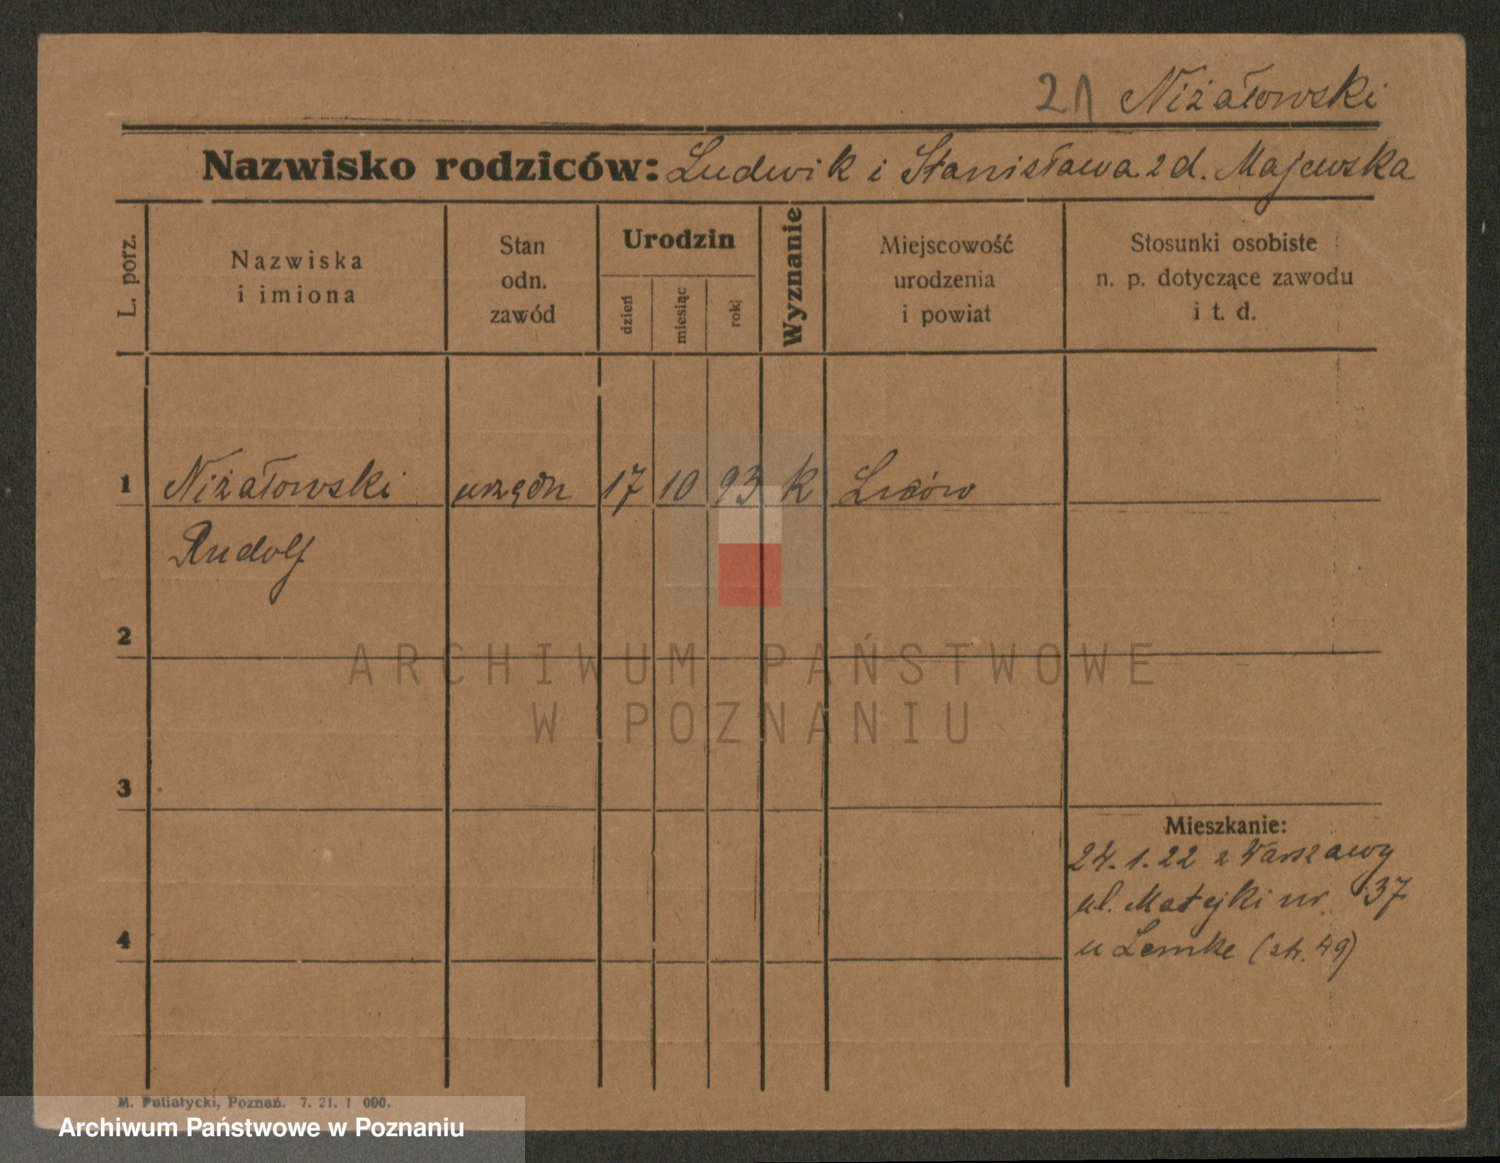 21 Niżałowski
Nazwisko rodziców: Ludwik i Stanisława z d. Majewska
L. porz.
Nazwiska
i imiona
Stan
odn.
zawód
Urodzin
dzień
miesiąc
rok
Wyznanie
Miejscowość
urodzenia
i powiat
Stosunki osobiste
n. p. dotyczące zawodu
i t. d.
1 Niżałowski urzędn 17 10 93 k Lwów
Rudolf
2
ARCHIWUM PAŃSTWOWE
W POZNANIU
3
Mieszkanie:
24.1.22 z Warszawy
ul. Matejki nr. 37
4
u Lemke (str. 49)
M. Putiatycki, Poznań. 7. 21. 1 000.
Archiwum Państwowe w Poznaniu